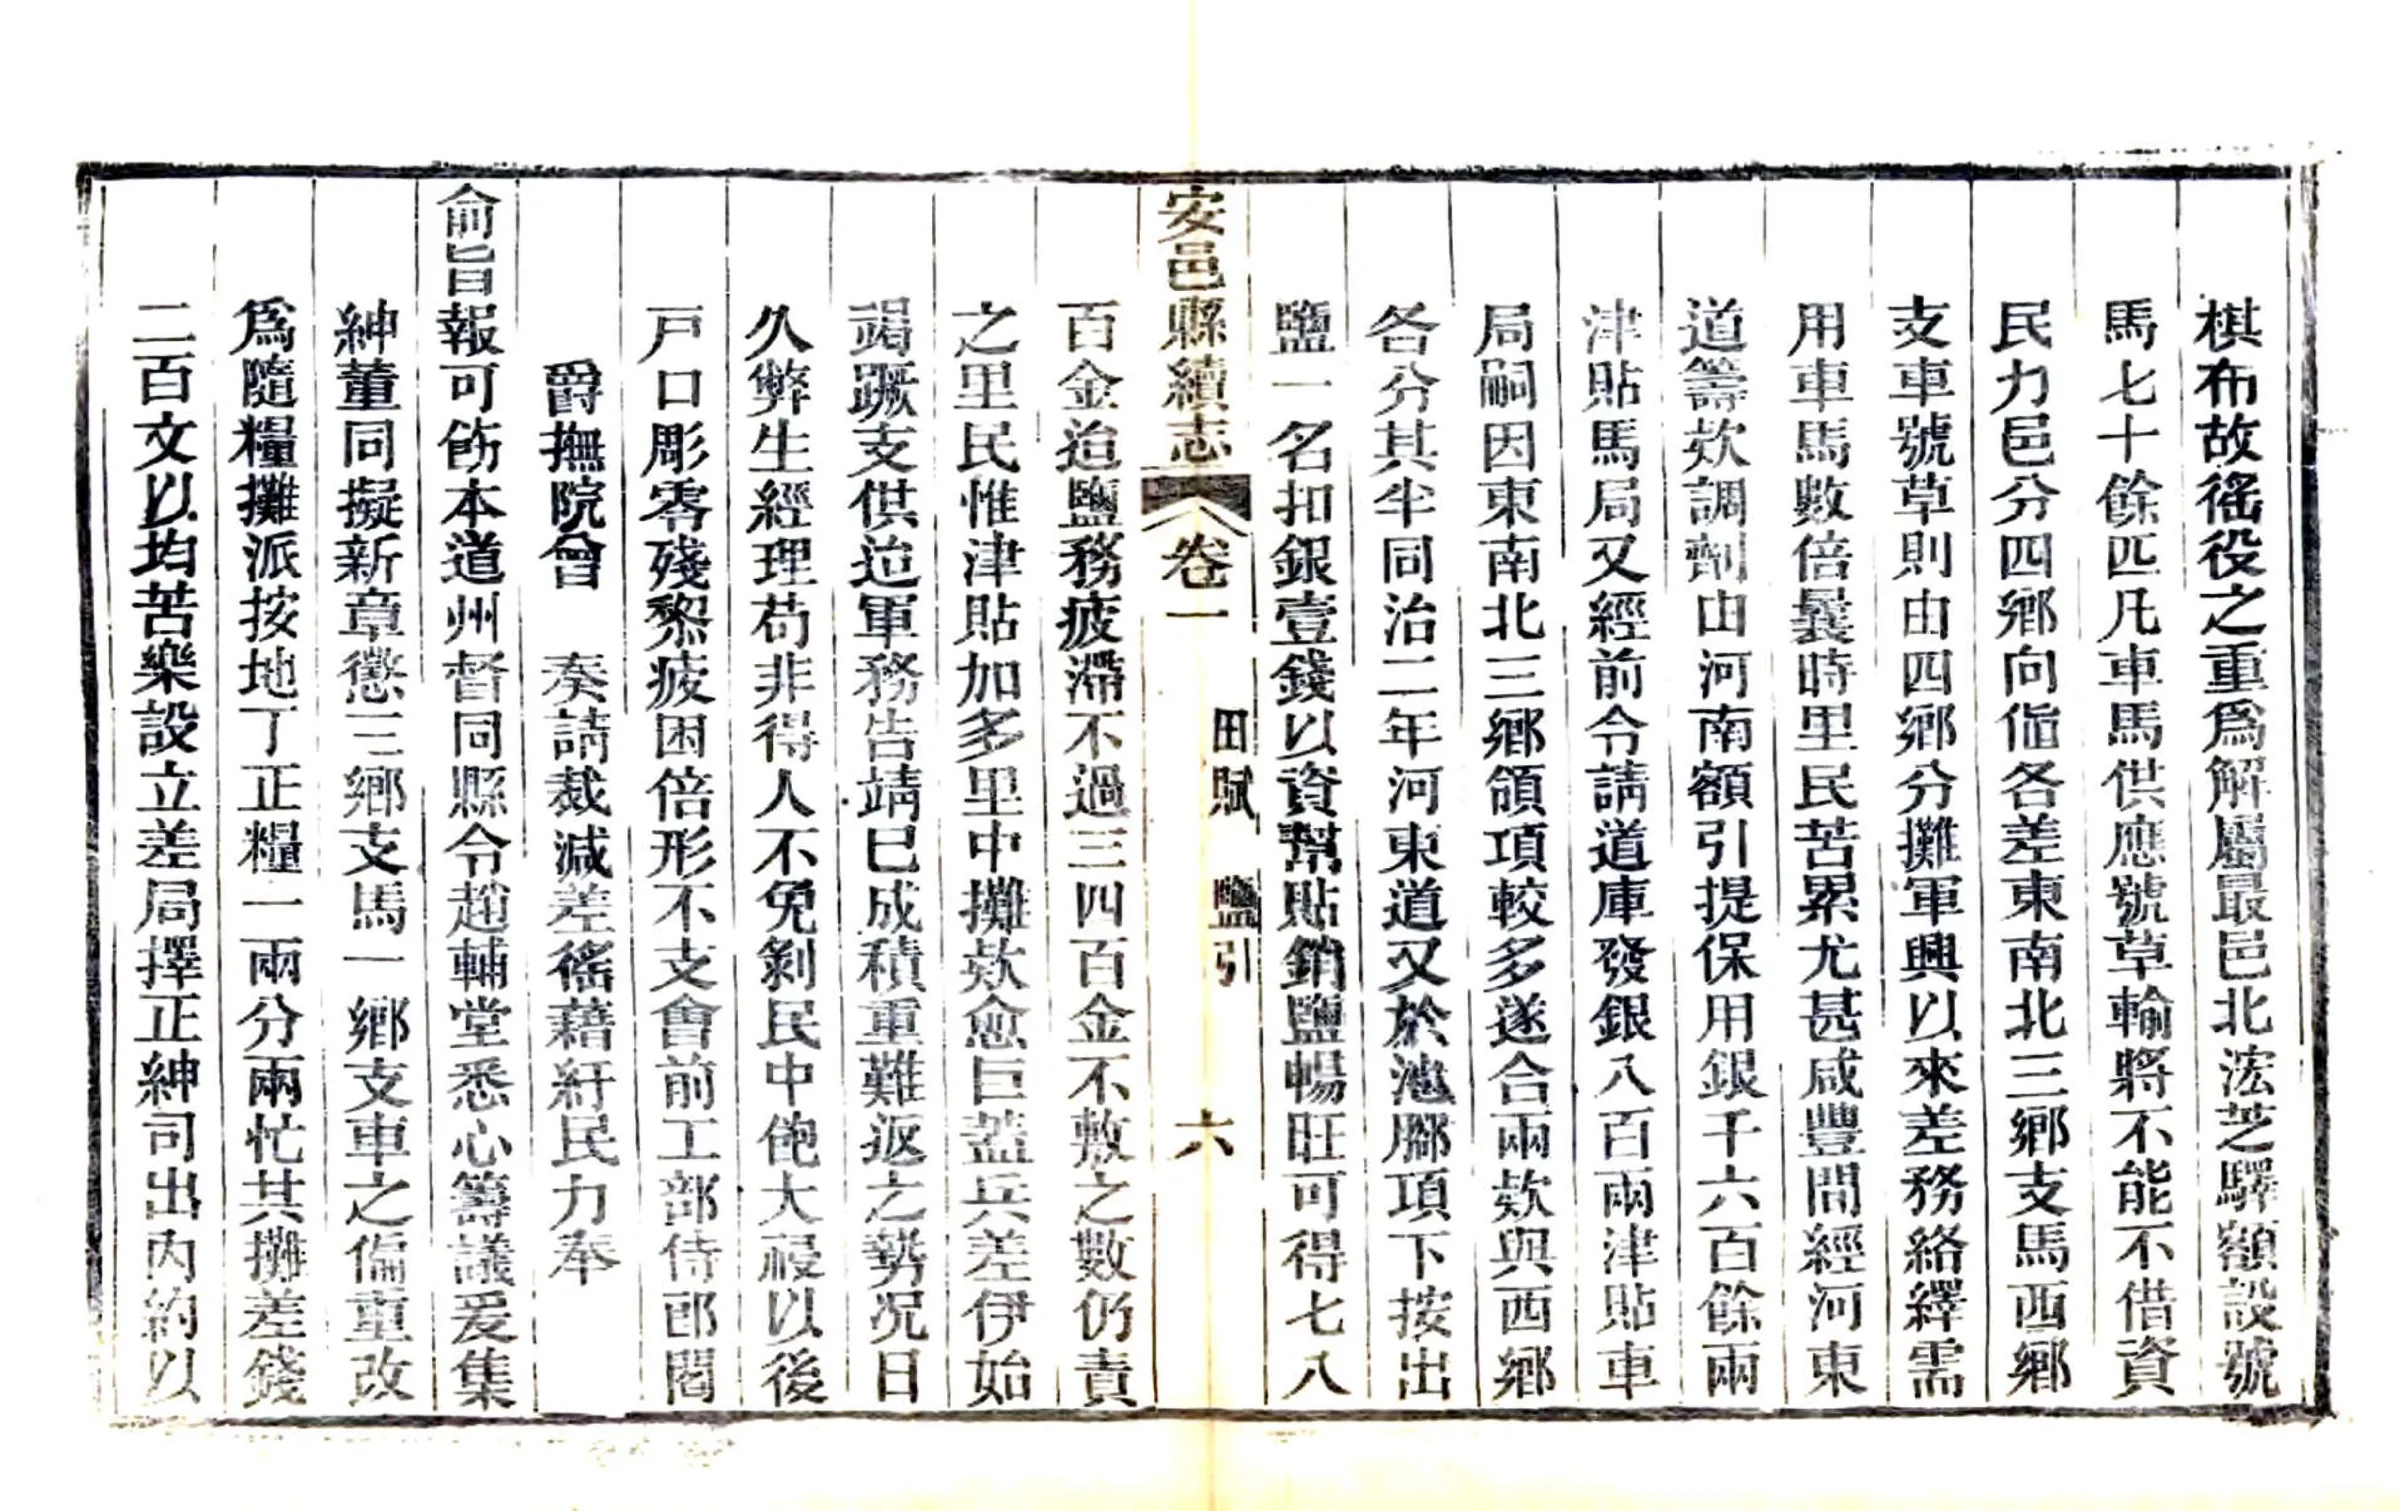 棋布故徭役之重爲解屬最邑北泓芝驛額設號
馬七十餘匹凡車馬供應號草輸將不能不借資
民力邑分四鄉向偹各差東南北三鄉支馬西鄉
支車號草則由四鄉分攤軍興以來差務絡繹需
用車馬數倍曩時里民苦累尤甚咸豐間經河東
道籌欵調劑由河南額引提保用銀千六百餘兩
津貼馬局又經前令請道庫發銀八百兩津貼車
局嗣因東南北三鄉領項較多遂合兩欵與西鄉
各分其半同治二年河東道又於池腳項下按出
鹽一名扣銀壹錢以資幫貼銷鹽暢旺可得七八
安邑縣續志 卷一 田賦 鹽引 六
百金迨鹽務疲滯不過三四百金不敷之數仍責
之里民惟津貼加多里中攤欵愈巨蓋兵差伊始
竭蹶支供迨軍務告靖已成積重難返之勢況日
久弊生經理苟非得人不免剝民中飽大祲以後
戸口彫零殘黎疲困倍形不支會前工部侍郎閻
爵撫院曾 奏請裁減差徭藉紓民力奉
俞旨報可飭本道州督同縣令趙輔堂悉心籌議爰集
紳董同擬新章懲三鄉支馬一鄉支車之偏重改
爲隨糧攤派按地丁正糧一兩分兩忙共攤差錢
二百文以均苦樂設立差局擇正紳司出內約以